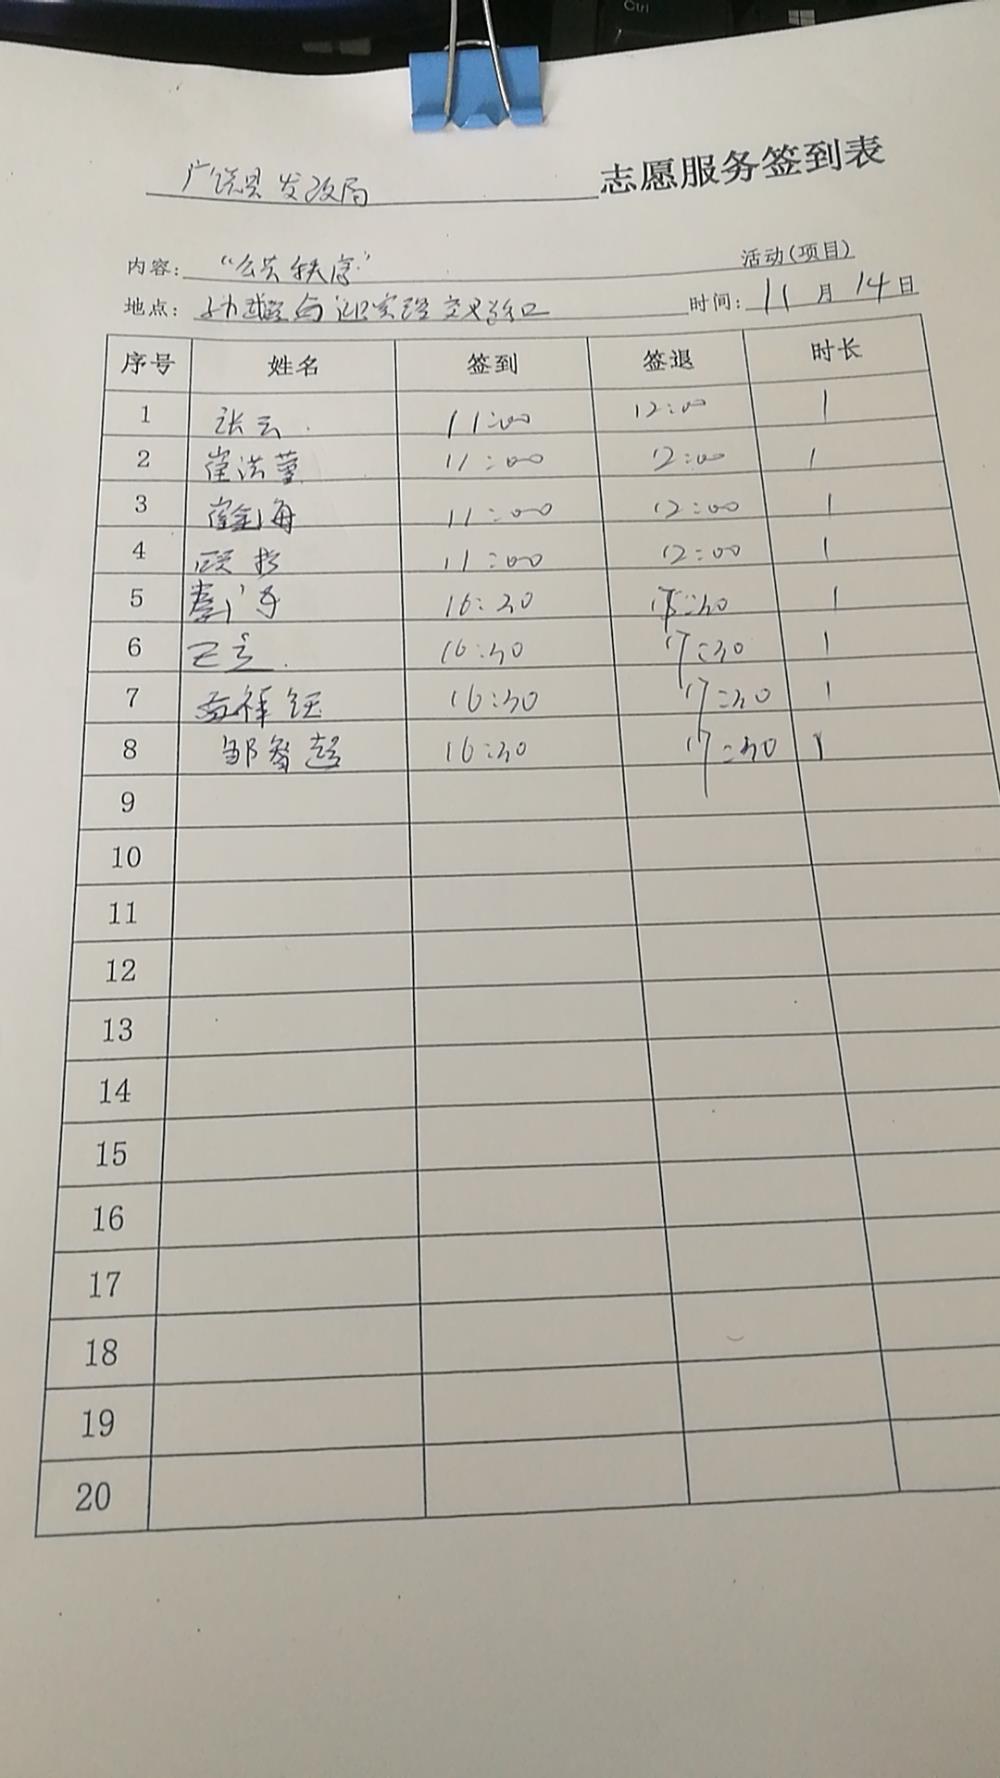 Ctrl
广饶县发改局 志愿服务签到表
内容: "公共秩序" 活动(项目)
地点: 孙武路与 交叉路口 时间: 11 月 14 日
序号 姓名 签到 签退 时长
1 张云 11:00 12:00 1
2 崔洪 11:00 12:00 1
3 海 11:00 12:00 1
4 11:00 12:00 1
5 16:30 17:30 1
6 16:30 17:30 1
7 祥钰 16:30 17:30 1
8 邹智超 16:30 17:30 1
9
10
11
12
13
14
15
16
17
18
19
20